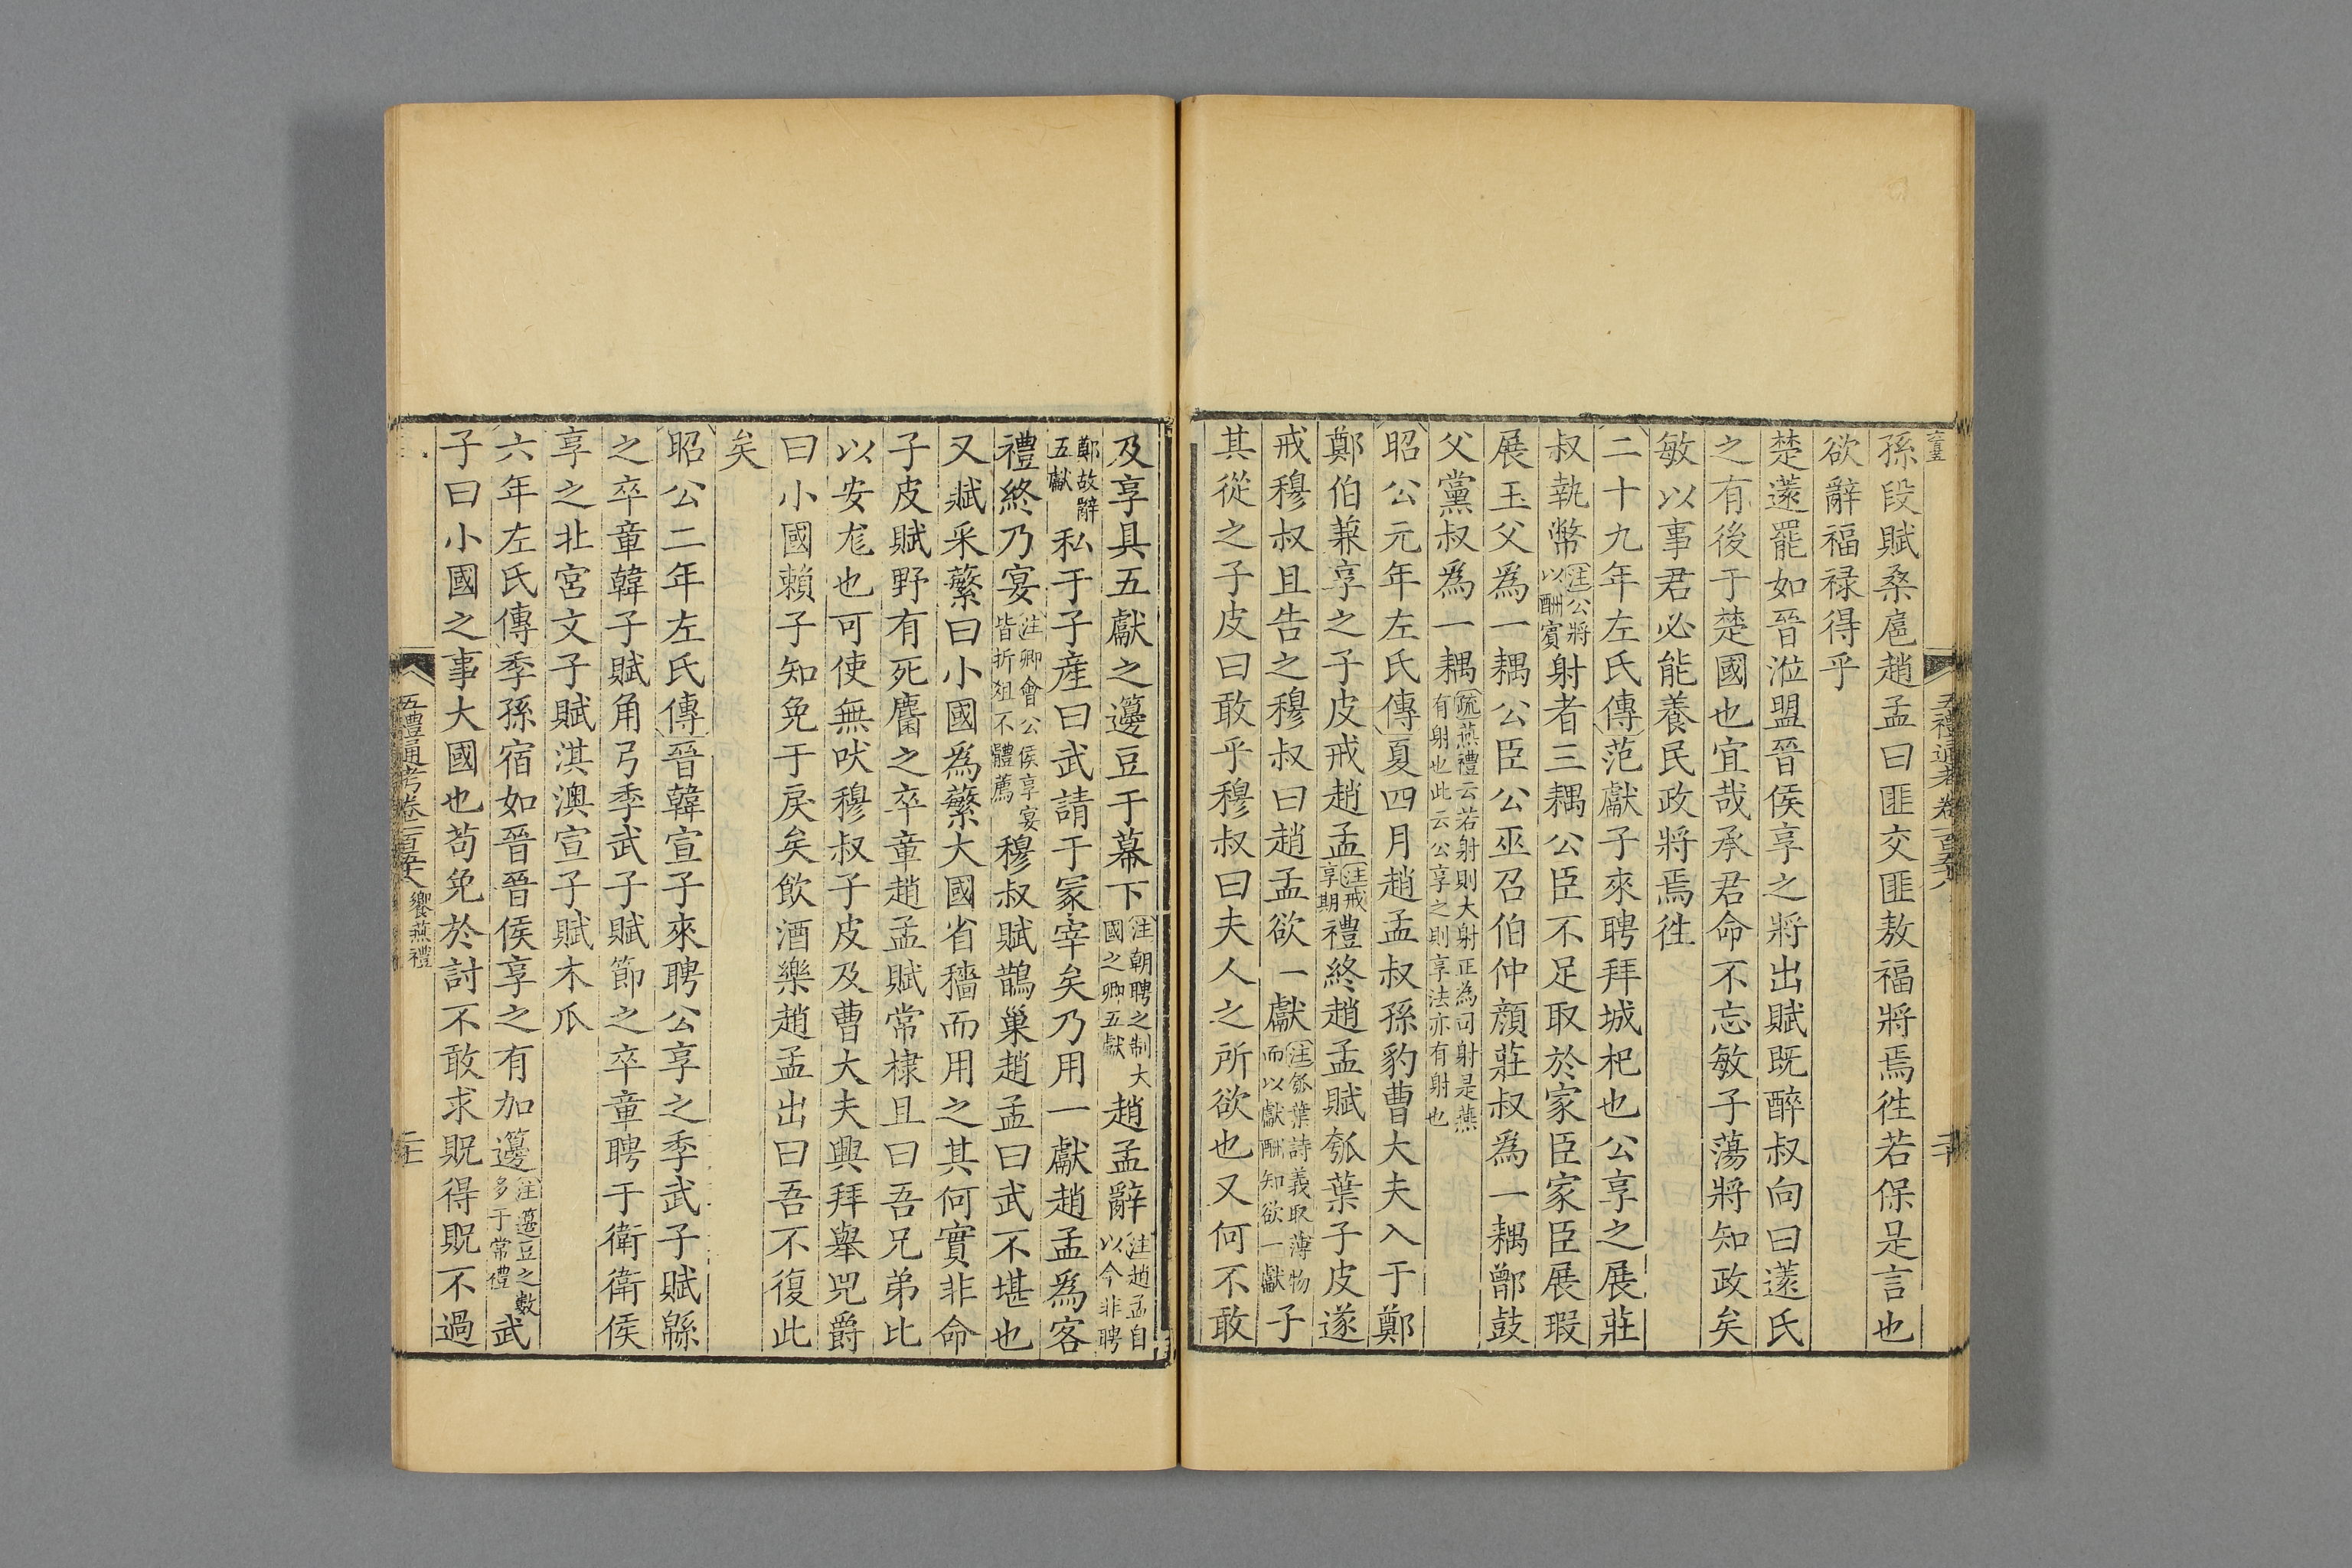 孫段賦桑扈趙孟曰匪交匪敖福將焉徃若保是言也
欲辭福禄得乎
楚薳罷如晉涖盟晉侯享之將出賦既醉叔向曰薳氏
之有後于楚國也宜哉承君命不忘敏子蕩將知政矣
敏以事君必能養民政將焉徃
二十九年左氏傳范獻子來聘拜城杞也公享之展莊
叔執幣注公將以酬賓射者三耦公臣不足取於家臣家臣展瑕
展玉父為一耦公臣公巫召伯仲顔莊叔爲一耦鄫鼓
父黨叔爲一耦疏燕禮云若射則大射正為司射是燕有射也此云公享之則享法亦有射也
昭公元年左氏傳夏四月趙孟叔孫豹曹大夫入于鄭
鄭伯兼享之子皮戒趙孟注戒享期禮終趙孟賦瓠葉子皮遂
戒穆叔且告之穆叔曰趙孟欲一獻注瓠葉詩義取薄物而以獻酬知欲一獻子
其從之子皮曰敢乎穆叔曰夫人之所欲也又何不敢
五禮通考卷一百五十八
二十
及享具五獻之籩豆于幕下注朝聘之制大國之卿五獻趙孟辭注趙孟自以今非聘
鄭故辭五獻私于子産曰武請于冢宰矣乃用一獻趙孟爲客
禮終乃宴注卿會公侯享宴皆折俎不體薦穆叔賦鵲巢趙孟曰武不堪也
又賦采蘩曰小國爲蘩大國省穡而用之其何實非命
子皮賦野有死麕之卒章趙孟賦常棣且曰吾兄弟比
以安尨也可使無吠穆叔子皮及曹大夫興拜舉兕爵
曰小國賴子知免于戾矣飲酒樂趙孟出曰吾不復此
矣
昭公二年左氏傳晉韓宣子來聘公享之季武子賦緜
之卒章韓子賦角弓季武子賦節之卒章聘于衛衛侯
享之北宮文子賦淇澳宣子賦木瓜
六年左氏傳季孫宿如晉晉侯享之有加籩注籩豆之數多于常禮武
子曰小國之事大國也苟免於討不敢求貺得貺不過
五禮通考卷一百五十八 饗燕禮
二十一